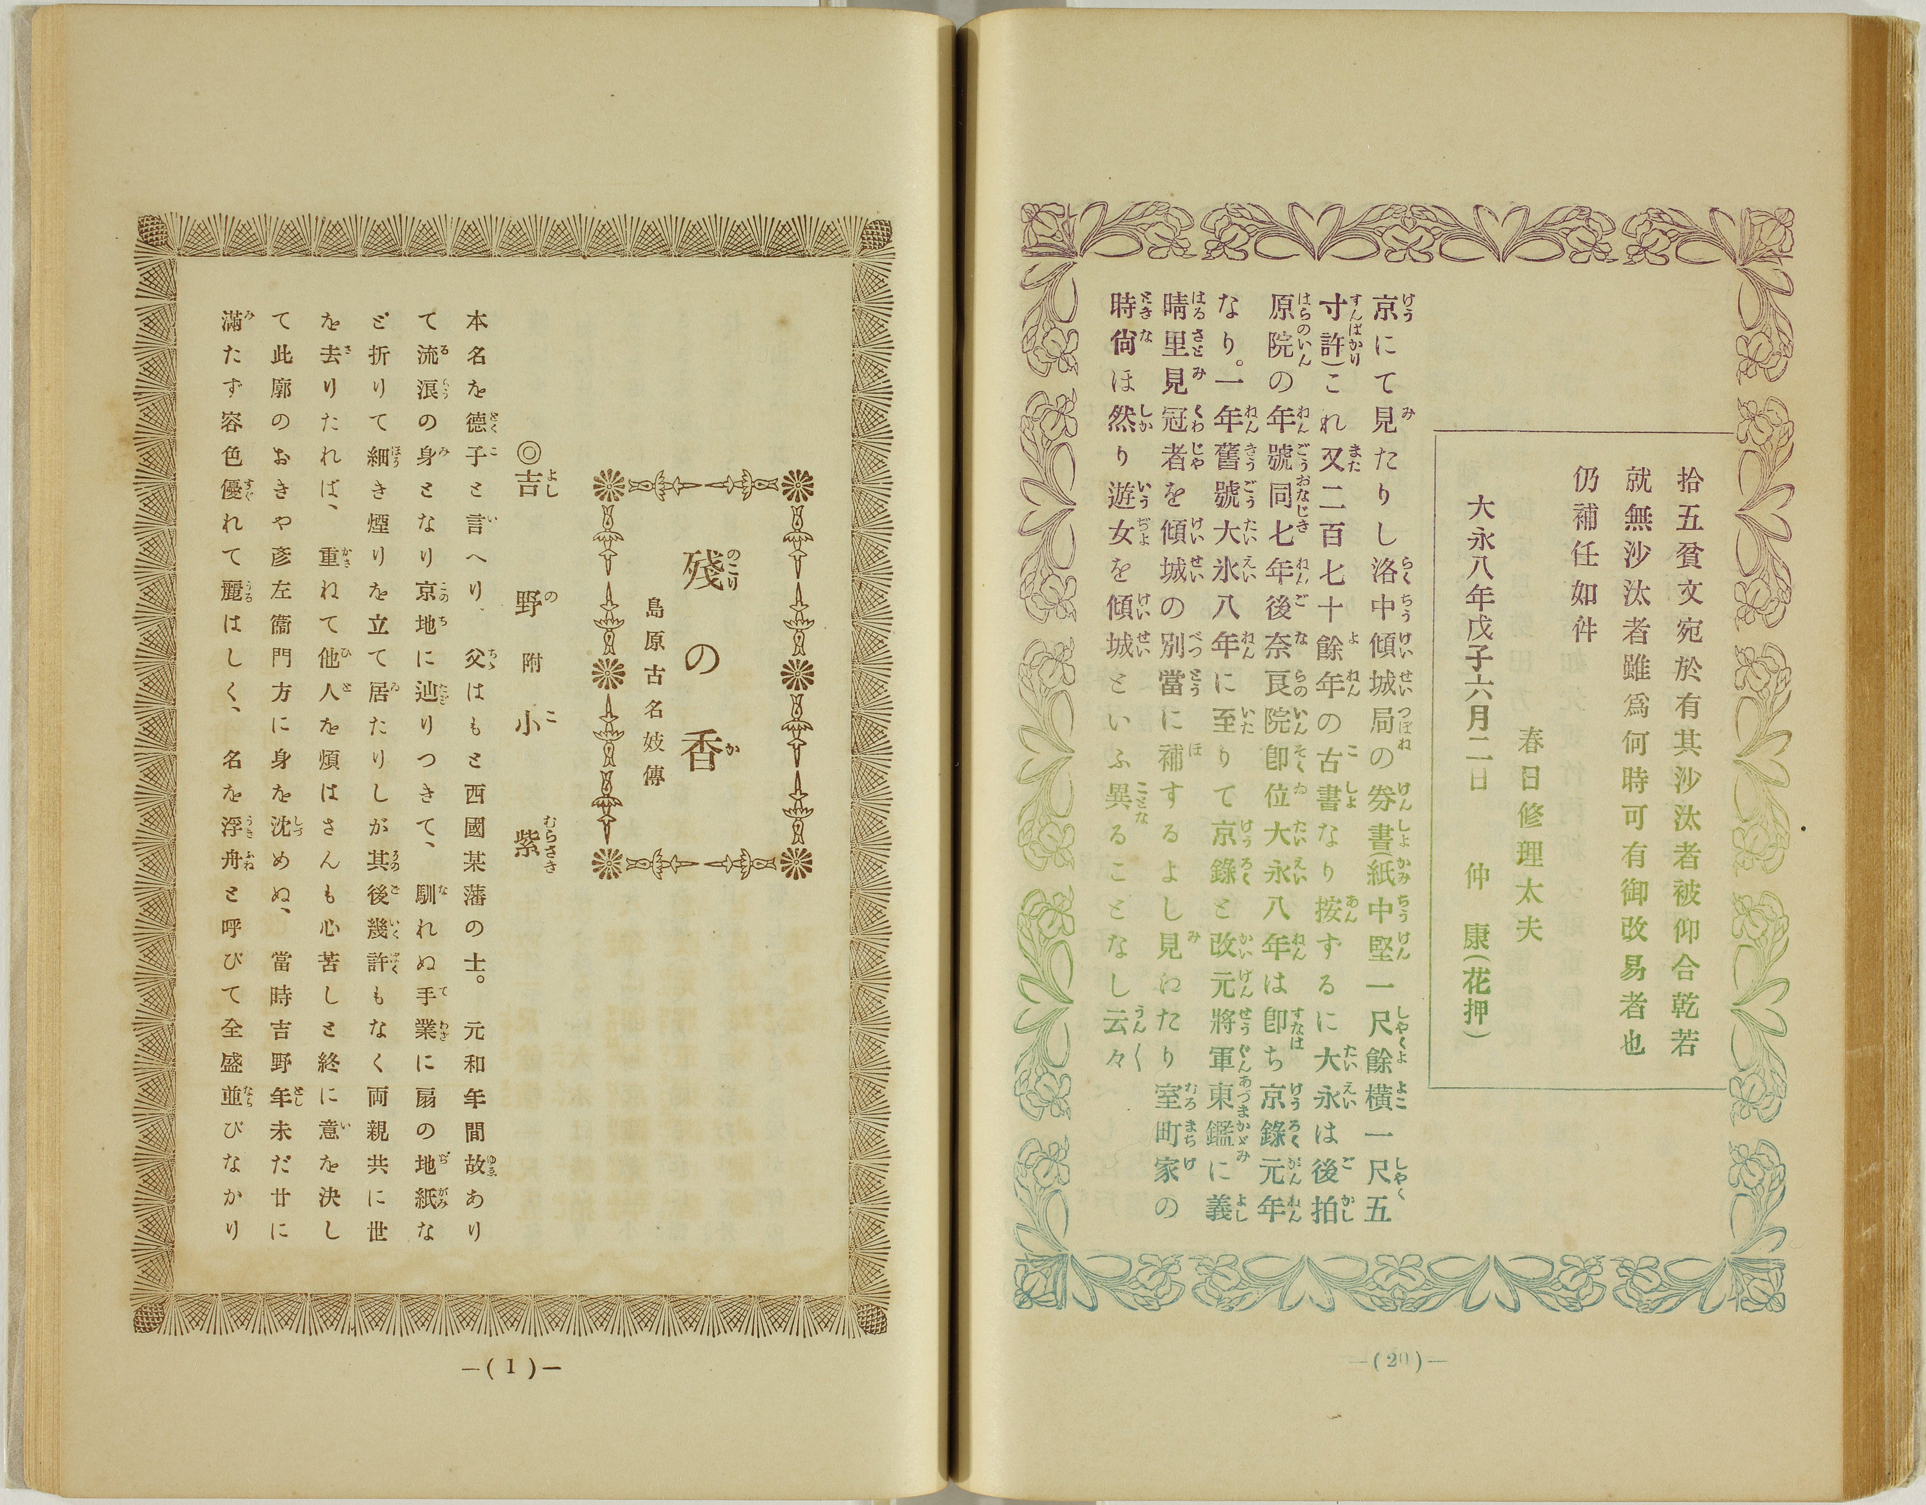 拾五貧文宛於有其沙汰者被仰合乾若
就無沙汰者雖爲何時可有御改易者也
仍補任如件
春日修理太夫
大永八年戊子六月二日　仲　康(花押)
京にて見たりし洛中傾城局の劵書(紙中堅一尺餘橫一尺五
寸許)これ又二百七十餘年の古書なり按ずるに大永は後拍
原院の年號同七年後奈良院卽位大永八年は卽ち京錄元年
なり。一年舊號大氷八年に至りて京錄と改元將軍東鑑に義
晴里見冠者を傾城の別當に補するよし見ゐたり室町家の
時尙ほ然り遊女を傾城といふ異ることなし云々〱
—(20)—
殘の香
島原古名妓傳
◎吉野附小紫
本名を德子と言へり、父はもと西國某藩の士。元和年間故あり
て流浪の身となり京地に辿りつきて、馴れぬ手業に扇の地紙な
ど折りて細き煙りを立て居たりしが其後幾許もなく両親共に世
を去りたれば、重ねて他人を煩はさんも心苦しと終に意を決し
て此廓のおきや彥左衞門方に身を沈めぬ、當時吉野年未だ廿に
滿たず容色優れて麗はしく、名を浮舟と呼びて全盛並びなかり
—(1)—